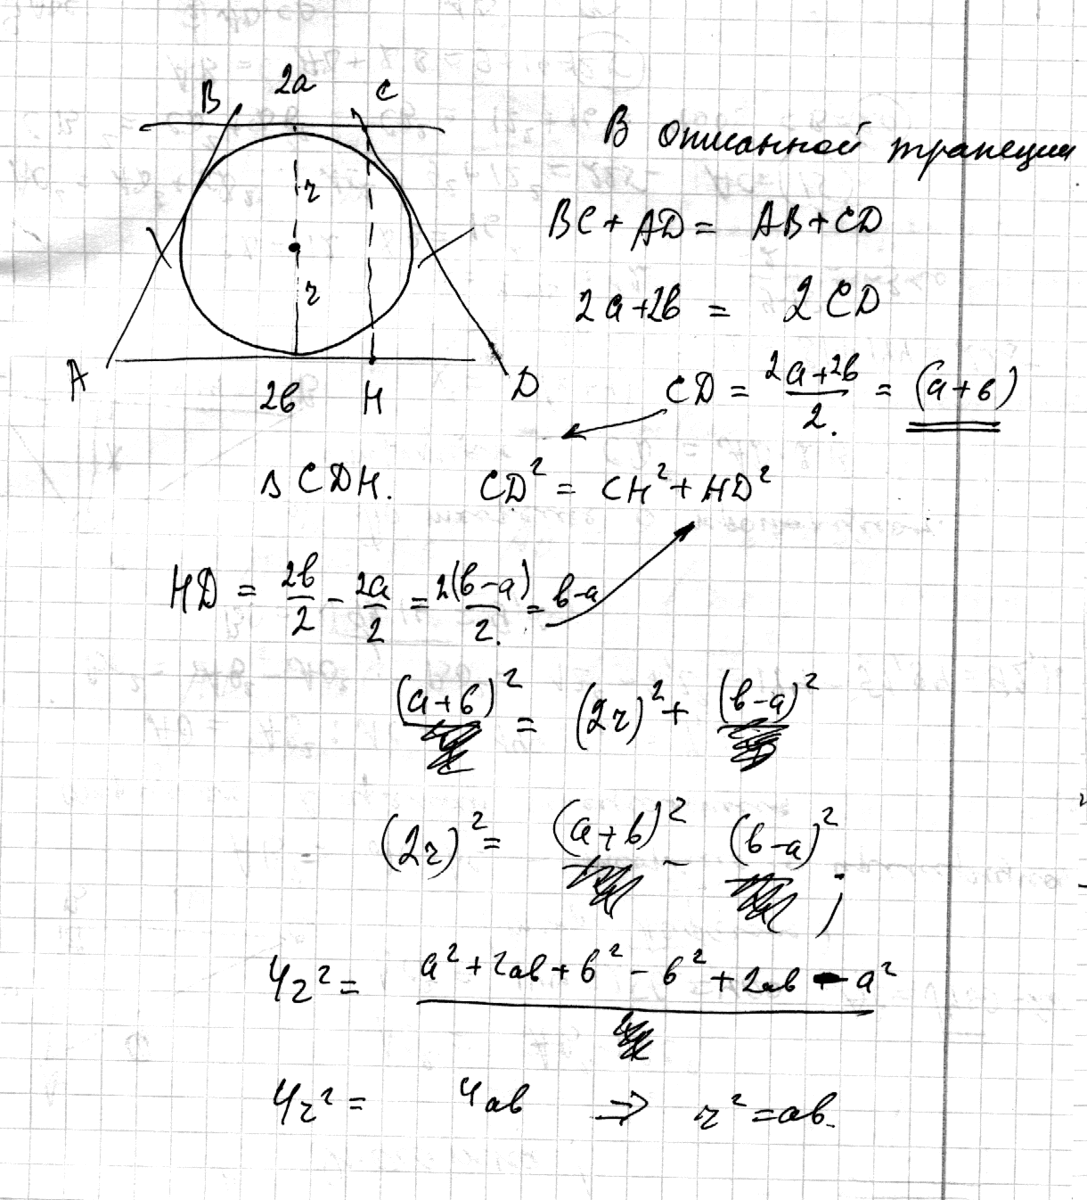 B 2a C
В описанной трапеции
r
BC + AD = AB + CD
r
2a + 2b = 2 CD
A 2b H D
CD = (2a + 2b)/2. = (a + b)
Δ CDH. CD² = CH² + HD²
HD = 2b/2 - 2a/2 = 2(b-a)/2. = b-a
(a+b)² = (2r)² + (b-a)²
(2r)² = (a+b)² - (b-a)² ;
4r² = a² + 2ab + b² - b² + 2ab - a²
4r² = 4ab ⇒ r² = ab.